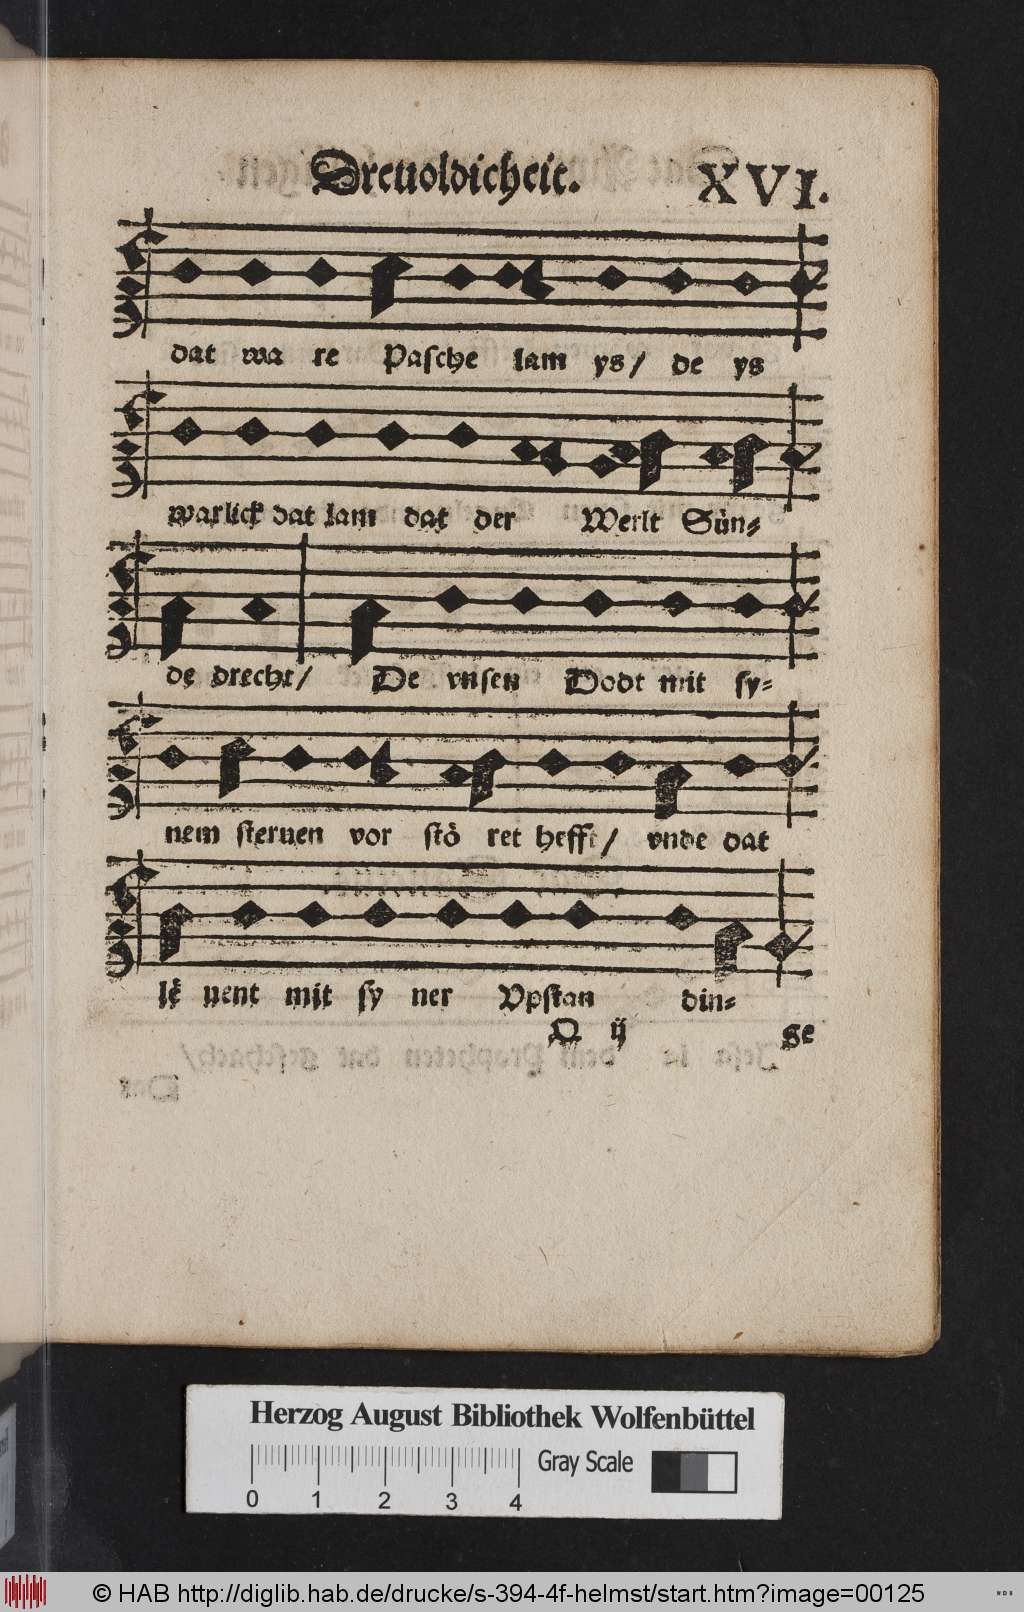 Dreuoldicheit. XVI.
dat wa re Pasche lam ys / de ys
warlick dat lam dat der Werlt Sün=
de drecht / De vnsen Dodt mit sy=
nem steruen vor stö ret hefft / vnde dat
le uent mit sy ner Vpstan din=
D ij ge
Herzog August Bibliothek Wolfenbüttel
Gray Scale
0 1 2 3 4
© HAB http://diglib.hab.de/drucke/s-394-4f-helmst/start.htm?image=00125